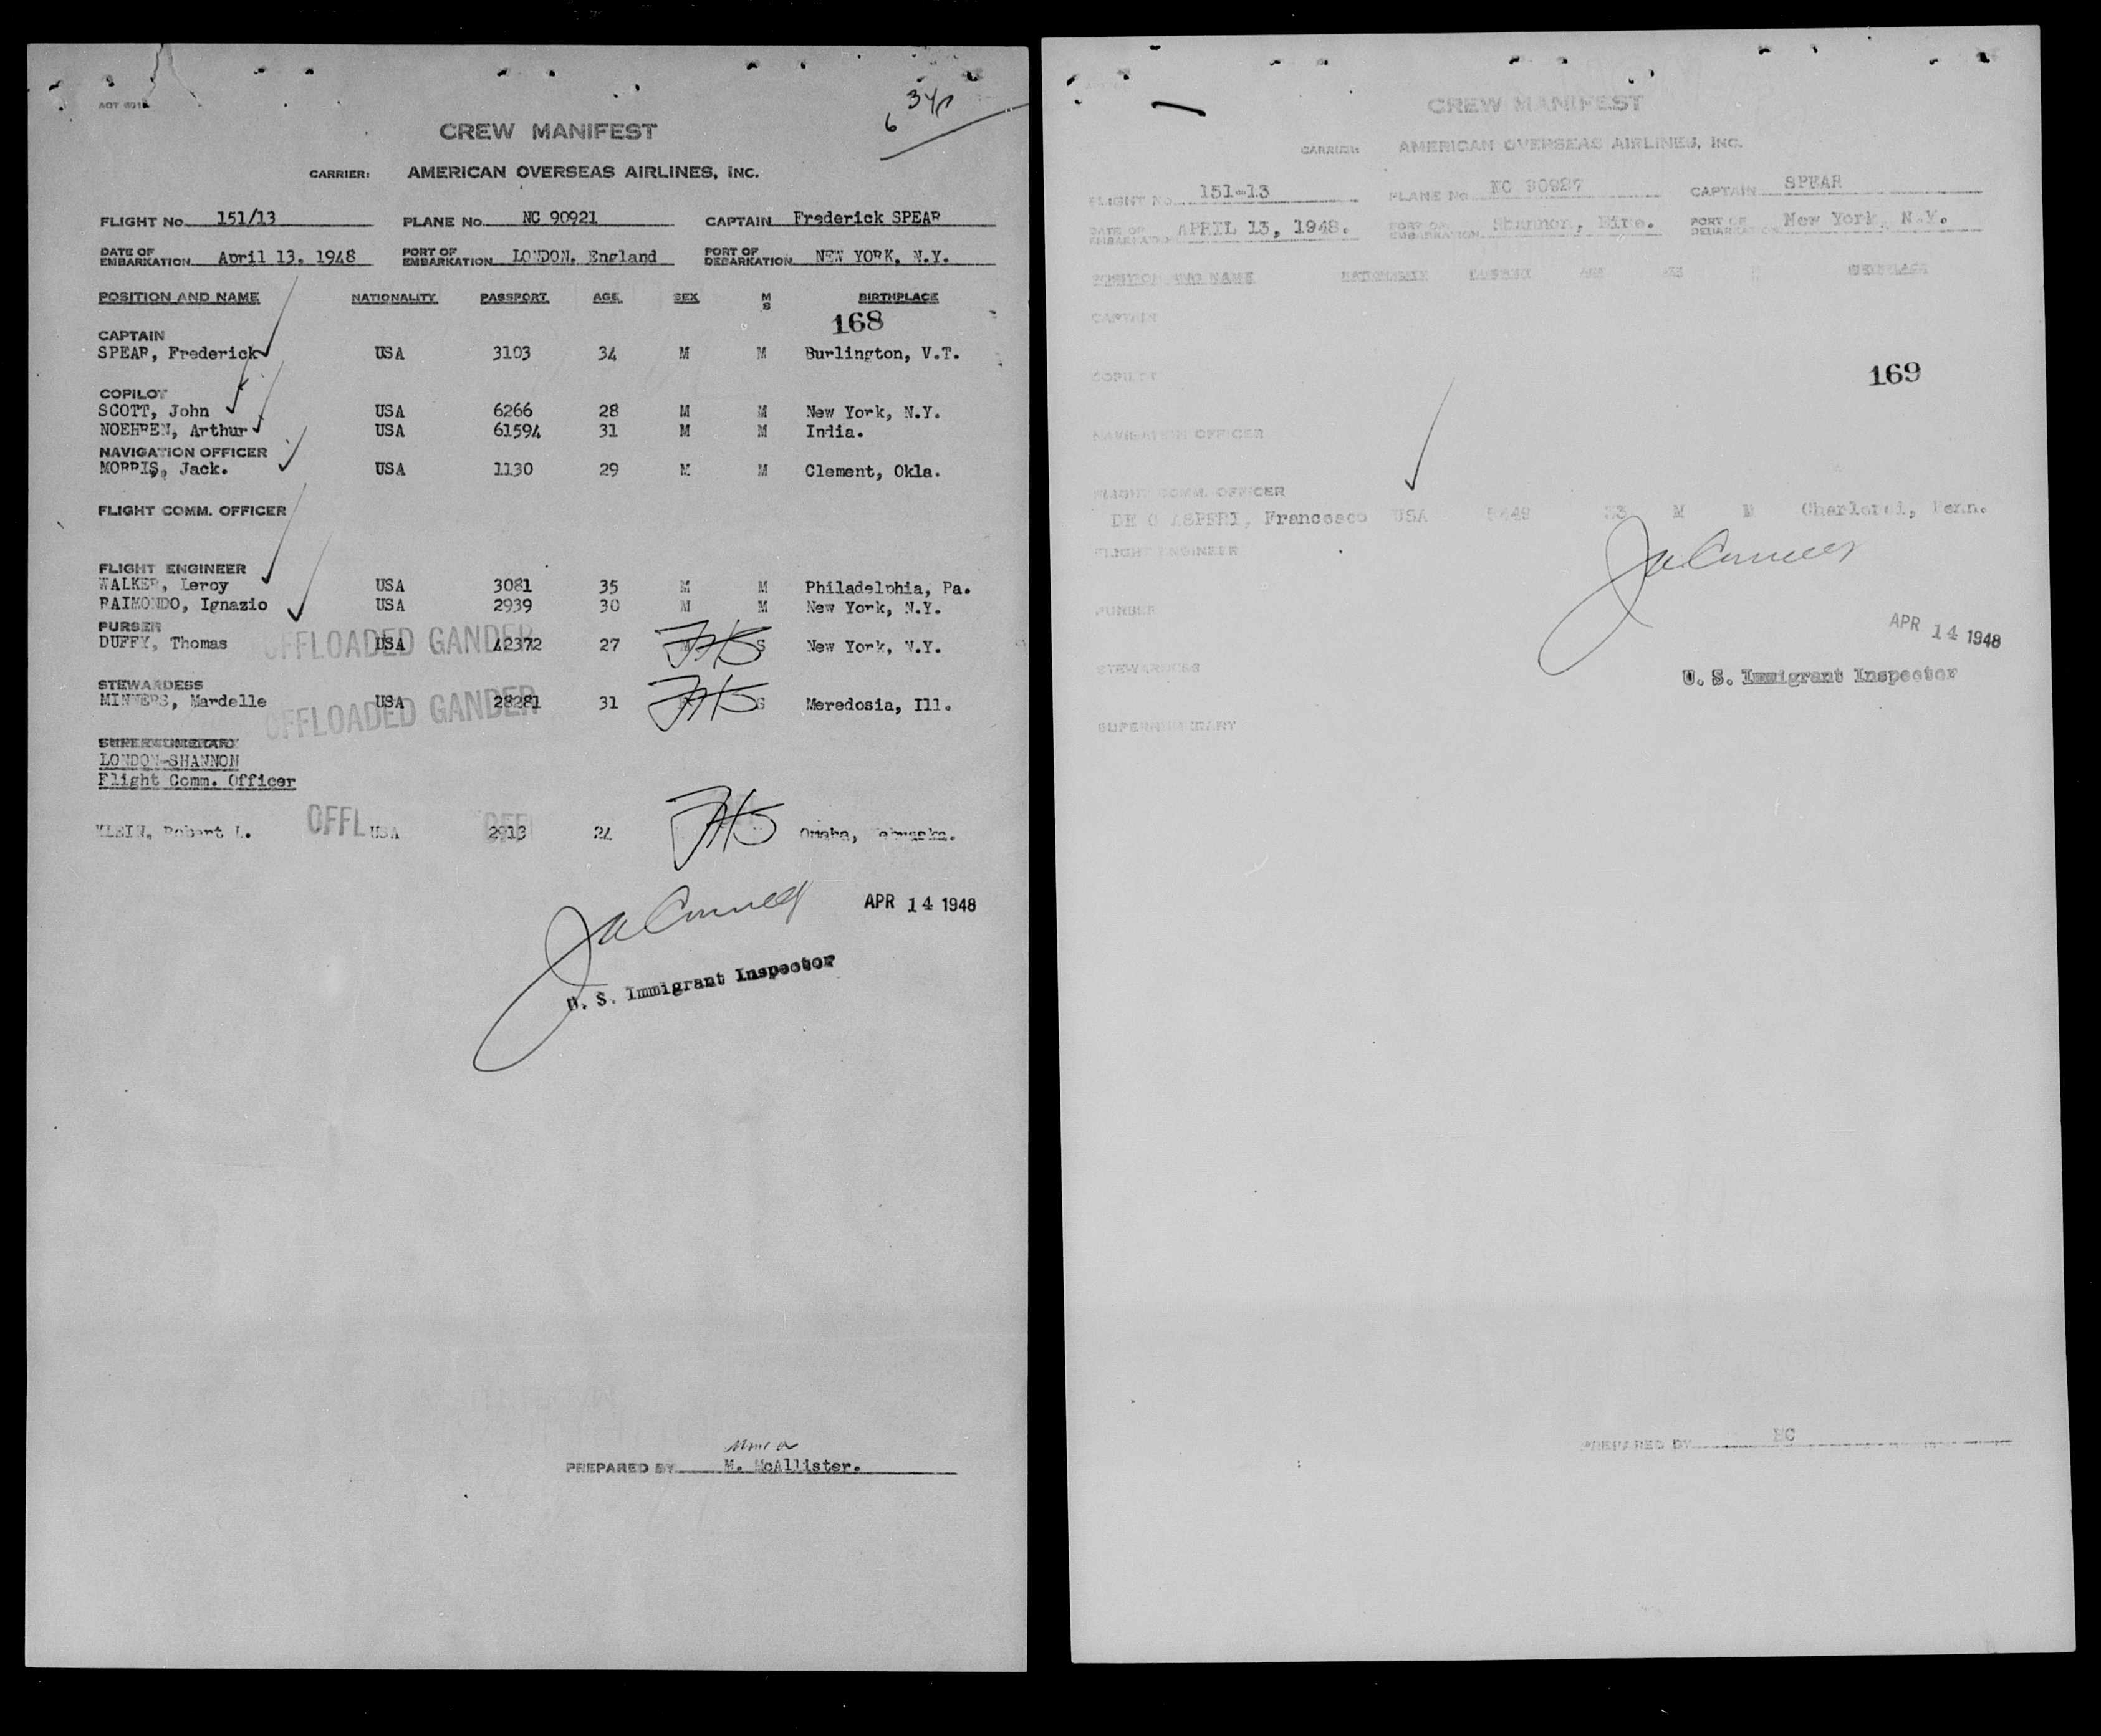 CREW MANIFEST
CARRIER: AMERICAN OVERSEAS AIRLINES, INC.
FLIGHT No. 151/13 PLANE No. NC 90921 CAPTAIN Frederick SPEAR
DATE OF EMBARKATION April 13. 1948 PORT OF EMBARKATION LONDON. England PORT OF DEBARKATION NEW YORK. N.Y.
POSITION AND NAME NATIONALITY PASSPORT AGE SEX M S BIRTHPLACE
168
CAPTAIN
SPEAR, Frederick USA 3103 34 M M Burlington, V.T.
COPILOT
SCOTT, John USA 6266 28 M M New York, N.Y.
NOEHREN, Arthur USA 61594 31 M M India.
NAVIGATION OFFICER
MORRIS, Jack. USA 1130 29 M M Clement, Okla.
FLIGHT COMM. OFFICER
FLIGHT ENGINEER
WALKER, Leroy USA 3081 35 M M Philadelphia, Pa.
RAIMONDO, Ignazio USA 2939 30 M M New York, N.Y.
PURSER
DUFFY, Thomas OFFLOADED GANDER USA 42372 27 S New York, N.Y.
STEWARDESS
MINNERS, Mardelle OFFLOADED GANDER USA 28281 31 S Meredosia, Ill.
SUPERNUMERARY
LONDON-SHANNON
Flight Comm. Officer
KLEIN, Robert L. OFFL USA 2913 24 Omaha, Nebraska.
APR 14 1948
U. S. Immigrant Inspector
PREPARED BY M. McAllister.
CREW MANIFEST
CARRIER: AMERICAN OVERSEAS AIRLINES, INC.
FLIGHT No. 151-13 PLANE No. CAPTAIN SPEAR
DATE OF EMBARKATION APRIL 13, 1948. PORT OF EMBARKATION Shannon, Eire. PORT OF DEBARKATION New York, N.Y.
POSITION AND NAME NATIONALITY PASSPORT AGE SEX BIRTHPLACE
CAPTAIN
COPILOT
169
NAVIGATION OFFICER
FLIGHT COMM. OFFICER
DE Francesco USA 33 M M Penn.
FLIGHT ENGINEER
PURSER
APR 14 1948
STEWARDESS
U. S. Immigrant Inspector
SUPERNUMERARY
PREPARED BY